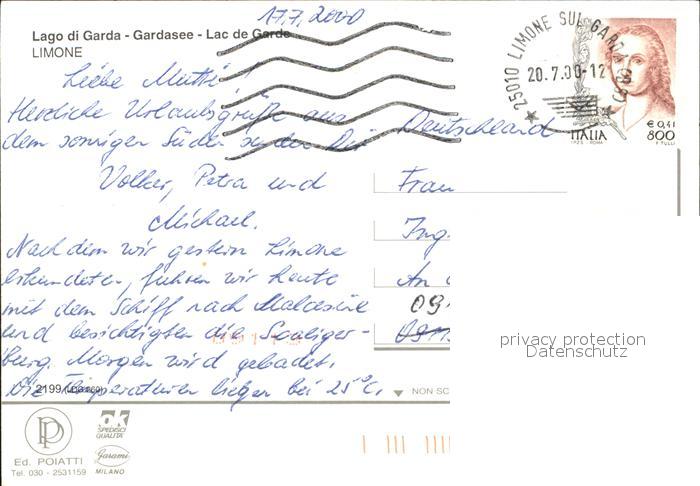 17.7.2000
Lago di Garda - Gardasee - Lac de Garde
LIMONE
25010 LIMONE SUL GARDA (BS)
20.7.00-12
ITALIA
€ 0,41
800
I.P.Z.S. - ROMA
T. TULLI
Liebe Mutti!
Herzliche Urlaubsgrüße aus
dem sonnigen Süden senden Dir
Volker, Petra und
Michael.
Nachdem wir gestern Limone
erkundeten, fuhren wir heute
mit dem Schiff nach Malcesine
und besichtigten die Scaliger-
burg. Morgen wird gebadet.
Die Temperaturen liegen bei 25°C.
Deutschland
Frau
Ing.
An
09
091
privacy protection
Datenschutz
2199
NON SC
PD
Ed. POIATTI
Tel. 030 - 2531159
OK
SPEDISCI
QUALITA'
Garami
MILANO